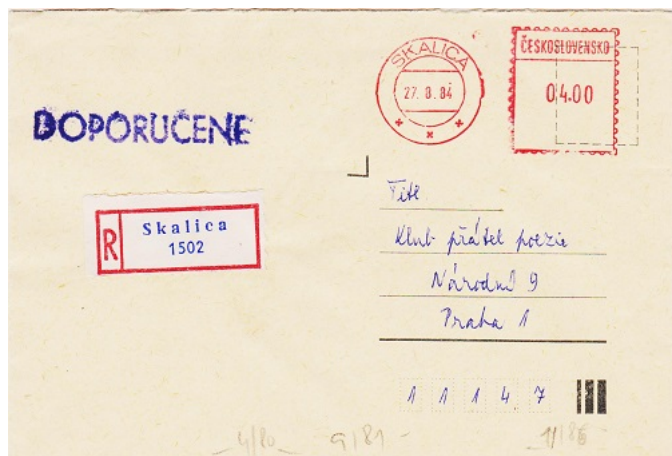 SKALICA
27. 8. 84
ČESKOSLOVENSKO
04.00
DOPORUČENE
R
Skalica
1502
Titl
Klub přátel poezie
Národní 9
Praha 1
1 1 1 4 7
4/80
9/81